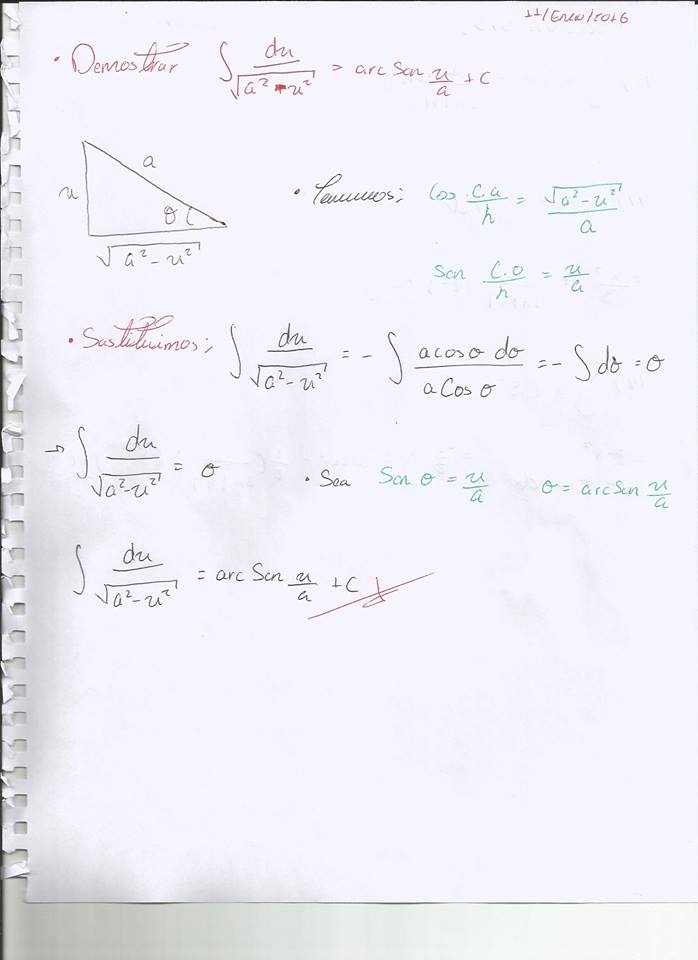 11/Enero/2016
• Demostrar ∫ du/√(a² - u²) = arc Sen u/a + c
a
u
θ
√(a² - u²)
• Tenemos; Cos C.a/h = √(a² - u²)/a
Sen C.O/h = u/a
• Sustituimos; ∫ du/√(a² - u²) = - ∫ a cos θ dθ/a Cos θ = - ∫ dθ = θ
→ ∫ du/√(a² - u²) = θ • Sea Sen θ = u/a θ = arc Sen u/a
∫ du/√(a² - u²) = arc Sen u/a + c